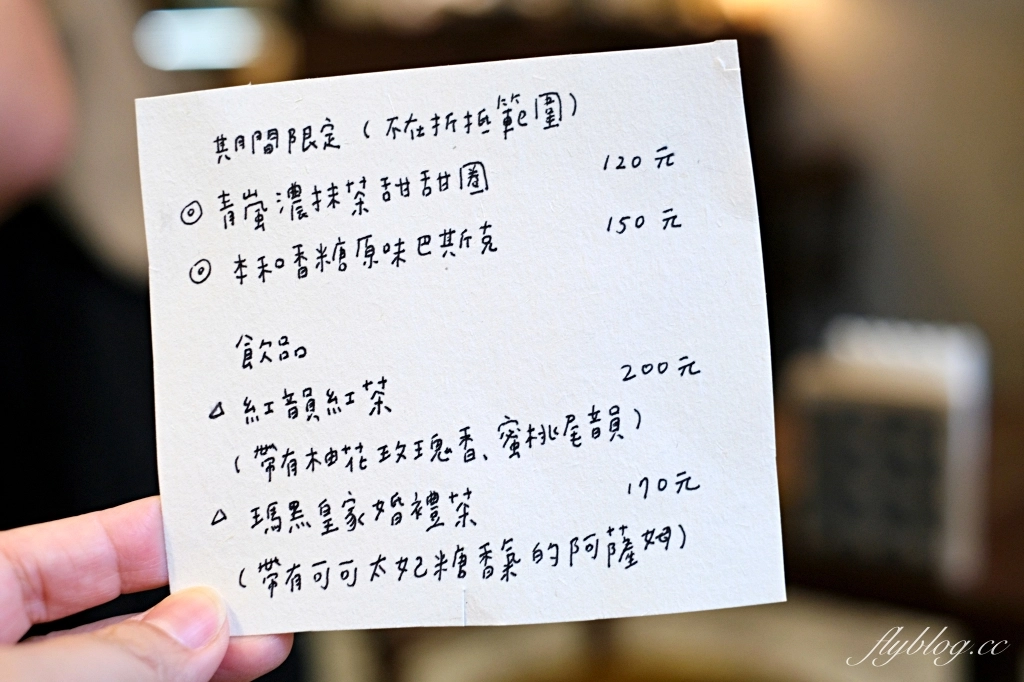 期間限定（不在折抵範圍）
◎ 青嵐濃抹茶甜甜圈 120元
◎ 本和香糖原味巴斯克 150元
飲品
△ 紅韻紅茶 200元
（帶有柚花玫瑰香、蜜桃尾韻）
△ 瑪黑皇家婚禮茶 170元
（帶有可可太妃糖香氣的阿薩姆）
flyblog.cc